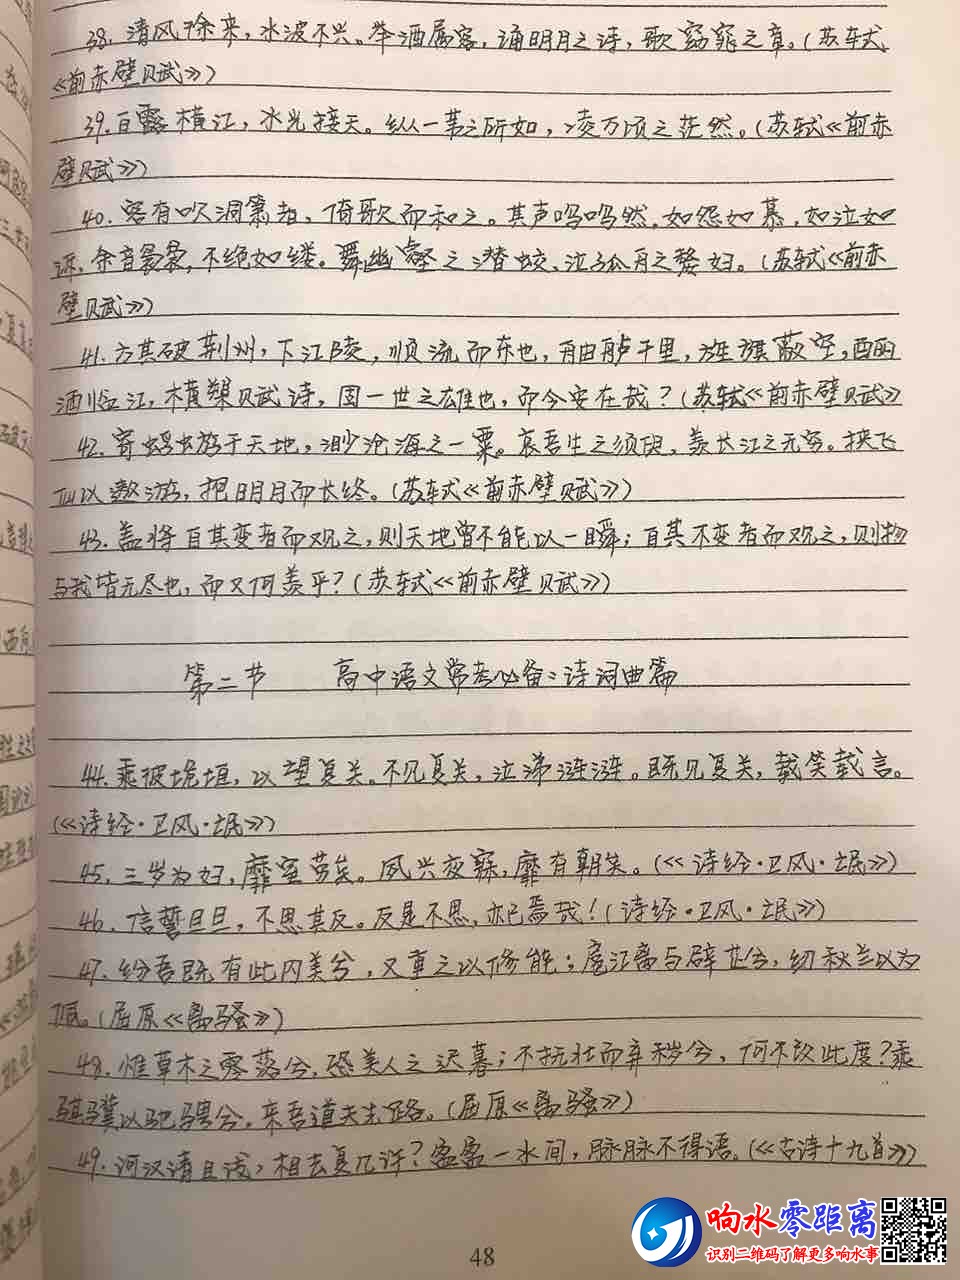 38. 清风徐来，水波不兴。举酒属客，诵明月之诗，歌窈窕之章。(苏轼
《前赤壁赋》)
39. 白露横江，水光接天。纵一苇之所如，凌万顷之茫然。(苏轼《前赤
壁赋》)
40. 客有吹洞箫者，倚歌而和之。其声呜呜然，如怨如慕，如泣如
诉，余音袅袅，不绝如缕。舞幽壑之潜蛟，泣孤舟之嫠妇。(苏轼《前赤
壁赋》)
41. 方其破荆州，下江陵，顺流而东也，舳舻千里，旌旗蔽空，酾
酒临江，横槊赋诗，固一世之雄也，而今安在哉？(苏轼《前赤壁赋》
42. 寄蜉蝣于天地，渺沧海之一粟。哀吾生之须臾，羡长江之无穷。挟飞
仙以遨游，抱明月而长终。(苏轼《前赤壁赋》)
43. 盖将自其变者而观之，则天地曾不能以一瞬；自其不变者而观之，则物
与我皆无尽也，而又何羡乎？(苏轼《前赤壁赋》)
第二节 高中语文常考必备：诗词曲篇
44. 乘彼垝垣，以望复关。不见复关，泣涕涟涟。既见复关，载笑载言。
(《诗经·卫风·氓》)
45. 三岁为妇，靡室劳矣。夙兴夜寐，靡有朝矣。(《诗经·卫风·氓》)
46. 信誓旦旦，不思其反。反是不思，亦已焉哉！(诗经·卫风·氓》)
47. 纷吾既有此内美兮，又重之以修能；扈江离与辟芷兮，纫秋兰以为
佩。(屈原《离骚》)
48. 惟草木之零落兮，恐美人之迟暮；不抚壮而弃秽兮，何不改此度？乘
骐骥以驰骋兮，来吾道夫先路。(屈原《离骚》)
49. 河汉清且浅，相去复几许？盈盈一水间，脉脉不得语。(《古诗十九首》)
48
响水零距离
识别二维码了解更多响水事